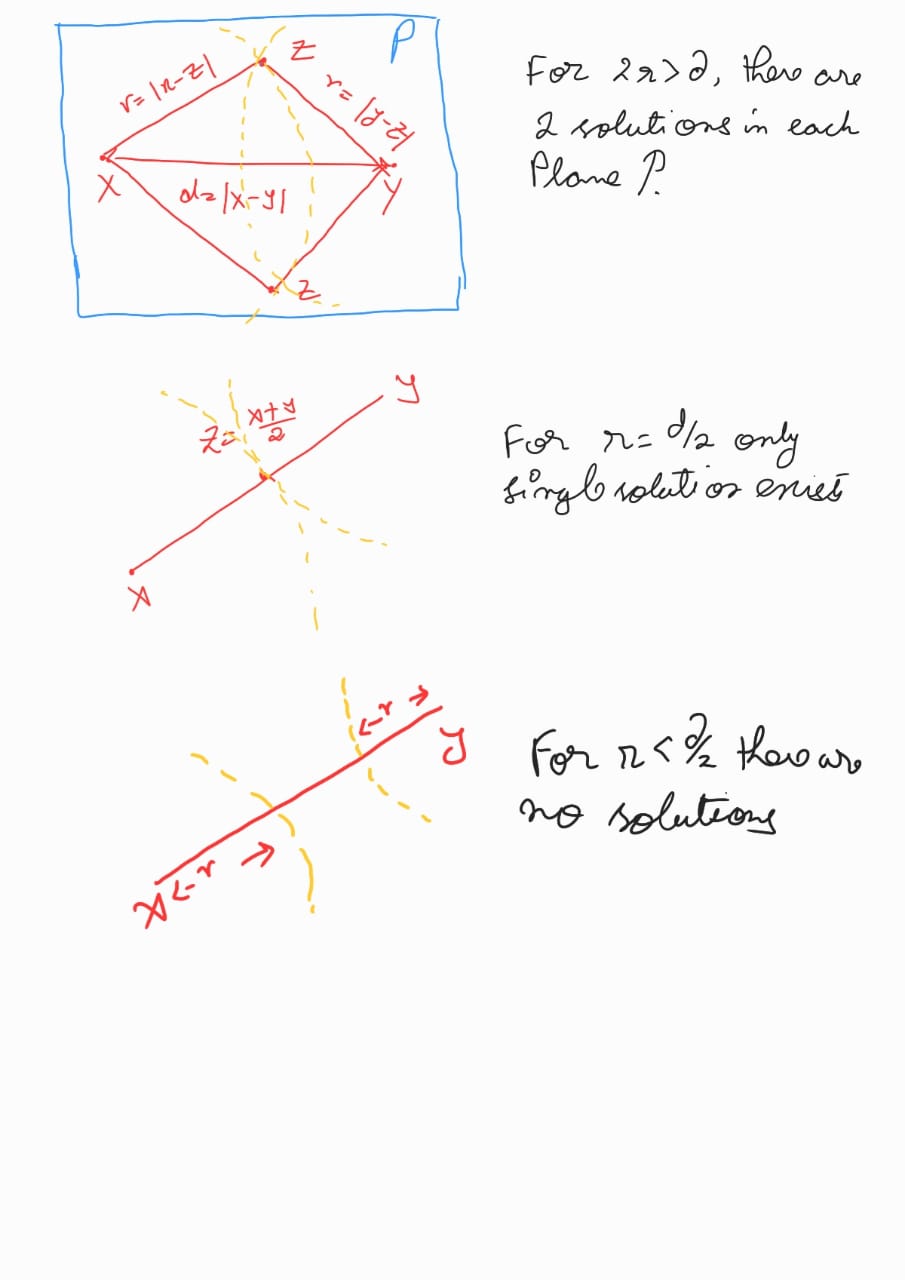 P
Z
r=|x-z|
r=|y-z|
X
Y
d=|x-y|
Z
For 2r>d, there are
2 solutions in each
Plane P.
y
Z= x+y/2
x
For r= d/2 only
single solution exist
r
y
r
x
For r<d/2 there are
no solutions